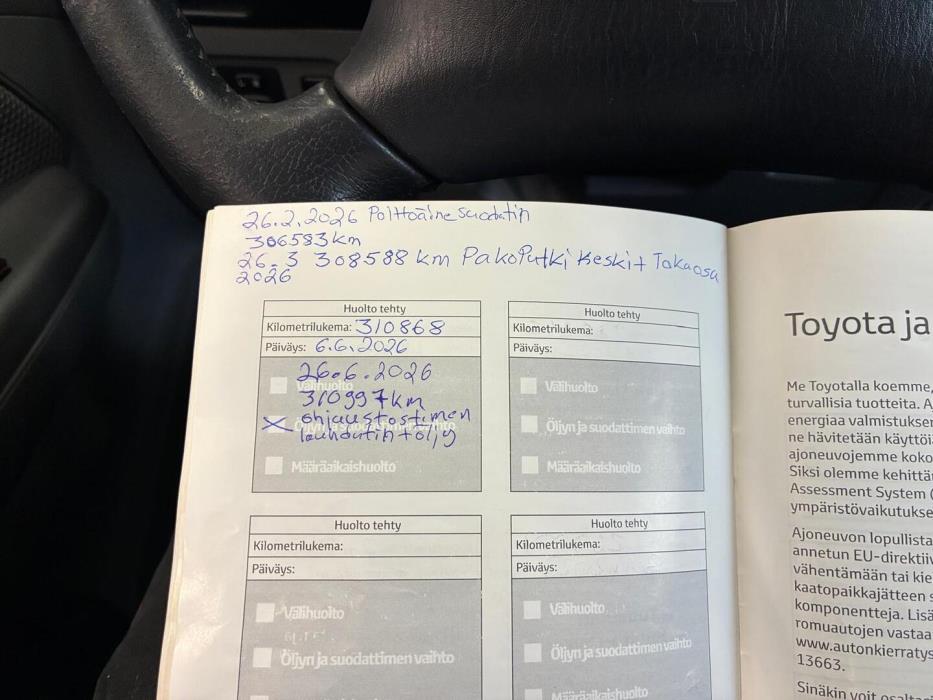 26.2.2026 Polttoäinesuodatin
306583km
26.3 308588 km PakoPutki Keski+ Takaosa
2026
Huolto tehty
Kilometrilukema: 310868
Päiväys: 6.6.2026
26.6.2026
Välihuolto
310997km
ohjaustostimen
Öljyn ja suodattimen vaihto
öljy
Määräaikaishuolto
Huolto tehty
Kilometrilukema:
Päiväys:
Välihuolto
Öljyn ja suodattimen vaihto
Määräaikaishuolto
Huolto tehty
Kilometrilukema:
Päiväys:
Välihuolto
Öljyn ja suodattimen vaihto
Huolto tehty
Kilometrilukema:
Päiväys:
Välihuolto
Öljyn ja suodattimen vaihto
Määräaikaishuolto
Toyota ja
Me Toyotalla koemme,
turvallisia tuotteita. A
energiaa valmistukser
ne hävitetään käyttöi
ajoneuvojemme koko
Siksi olemme kehittä
Assessment System (
ympäristövaikutukse
Ajoneuvon lopullista
annetun EU-direktiiv
vähentämään tai kie
kaatopaikkajätteen s
komponentteja. Lisä
romuautojen vastaa
www.autonkierratys
13663.
Sinäkin voit